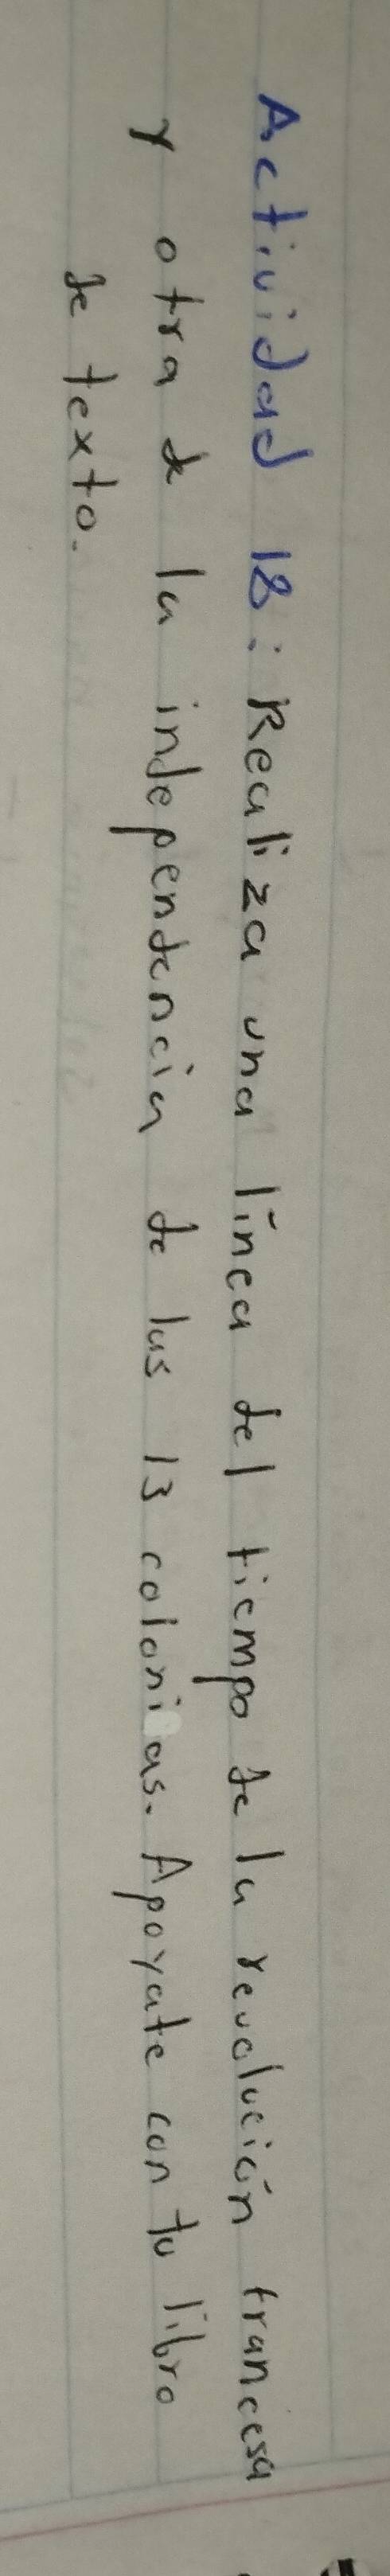 Actividad 18: Realiza una línea del tiempo de la revolución francesa
y otra de la independencia de las 13 colonias. Apoyate con tu libro
de texto.